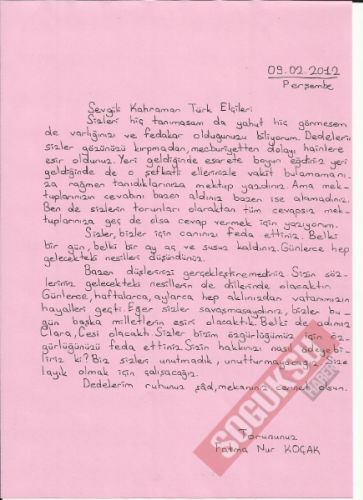 09.02.2012
Perşembe
Sevgili Kahraman Türk Elçileri
Sizleri hiç tanımasam da yahut hiç görmesem
de varlığınızı ve fedakar olduğunuzu biliyorum. Dedelerim
sizler gözünüzü kırpmadan, mecburiyetten dolayı hainlere
esir oldunuz. Yeri geldiğinde esarete boyun eğdiniz yeri
geldiğinde de o şefkatli ellerinizle vakit bulamamanı-
za rağmen tanıdıklarınıza mektup yazdınız. Ama mek-
tuplarınızın cevabını bazen aldınız bazen ise alamadınız.
Ben de sizlerin torunları olaraktan tüm cevapsız mek-
tuplarınıza geç de olsa cevap vermek için yazıyorum.
Sizler, bizler için canınızı feda ettiniz. Belki
bir gün, belki bir ay aç ve susuz kaldınız. Günlerce hep
gelecekteki nesilleri düşündünüz.
Bazen düşlerinizi gerçekleştiremediniz. Sizin söz-
leriniz gelecekteki nesillerin de dillerinde olacaktır.
Günlerce, haftalarca, aylarca hep aklınızdan vatanımızın
hayalleri geçti. Eğer sizler savaşmasaydınız, bizler bu-
gün başka milletlerin esiri olacaktık. Belki de adımız
Clara, Cesi olacaktı. Sizler bizim özgürlüğümüz için öz-
gürlüğünüzü feda ettiniz. Sizin hakkınızı nasıl ödeyebi-
liriz ki? Biz sizleri unutmadık, unutturmayacağız. Size
layık olmak için çalışacağız.
Dedelerim ruhunuz şâd, mekanınız cennet olsun.
Torununuz
Fatma Nur KOÇAK